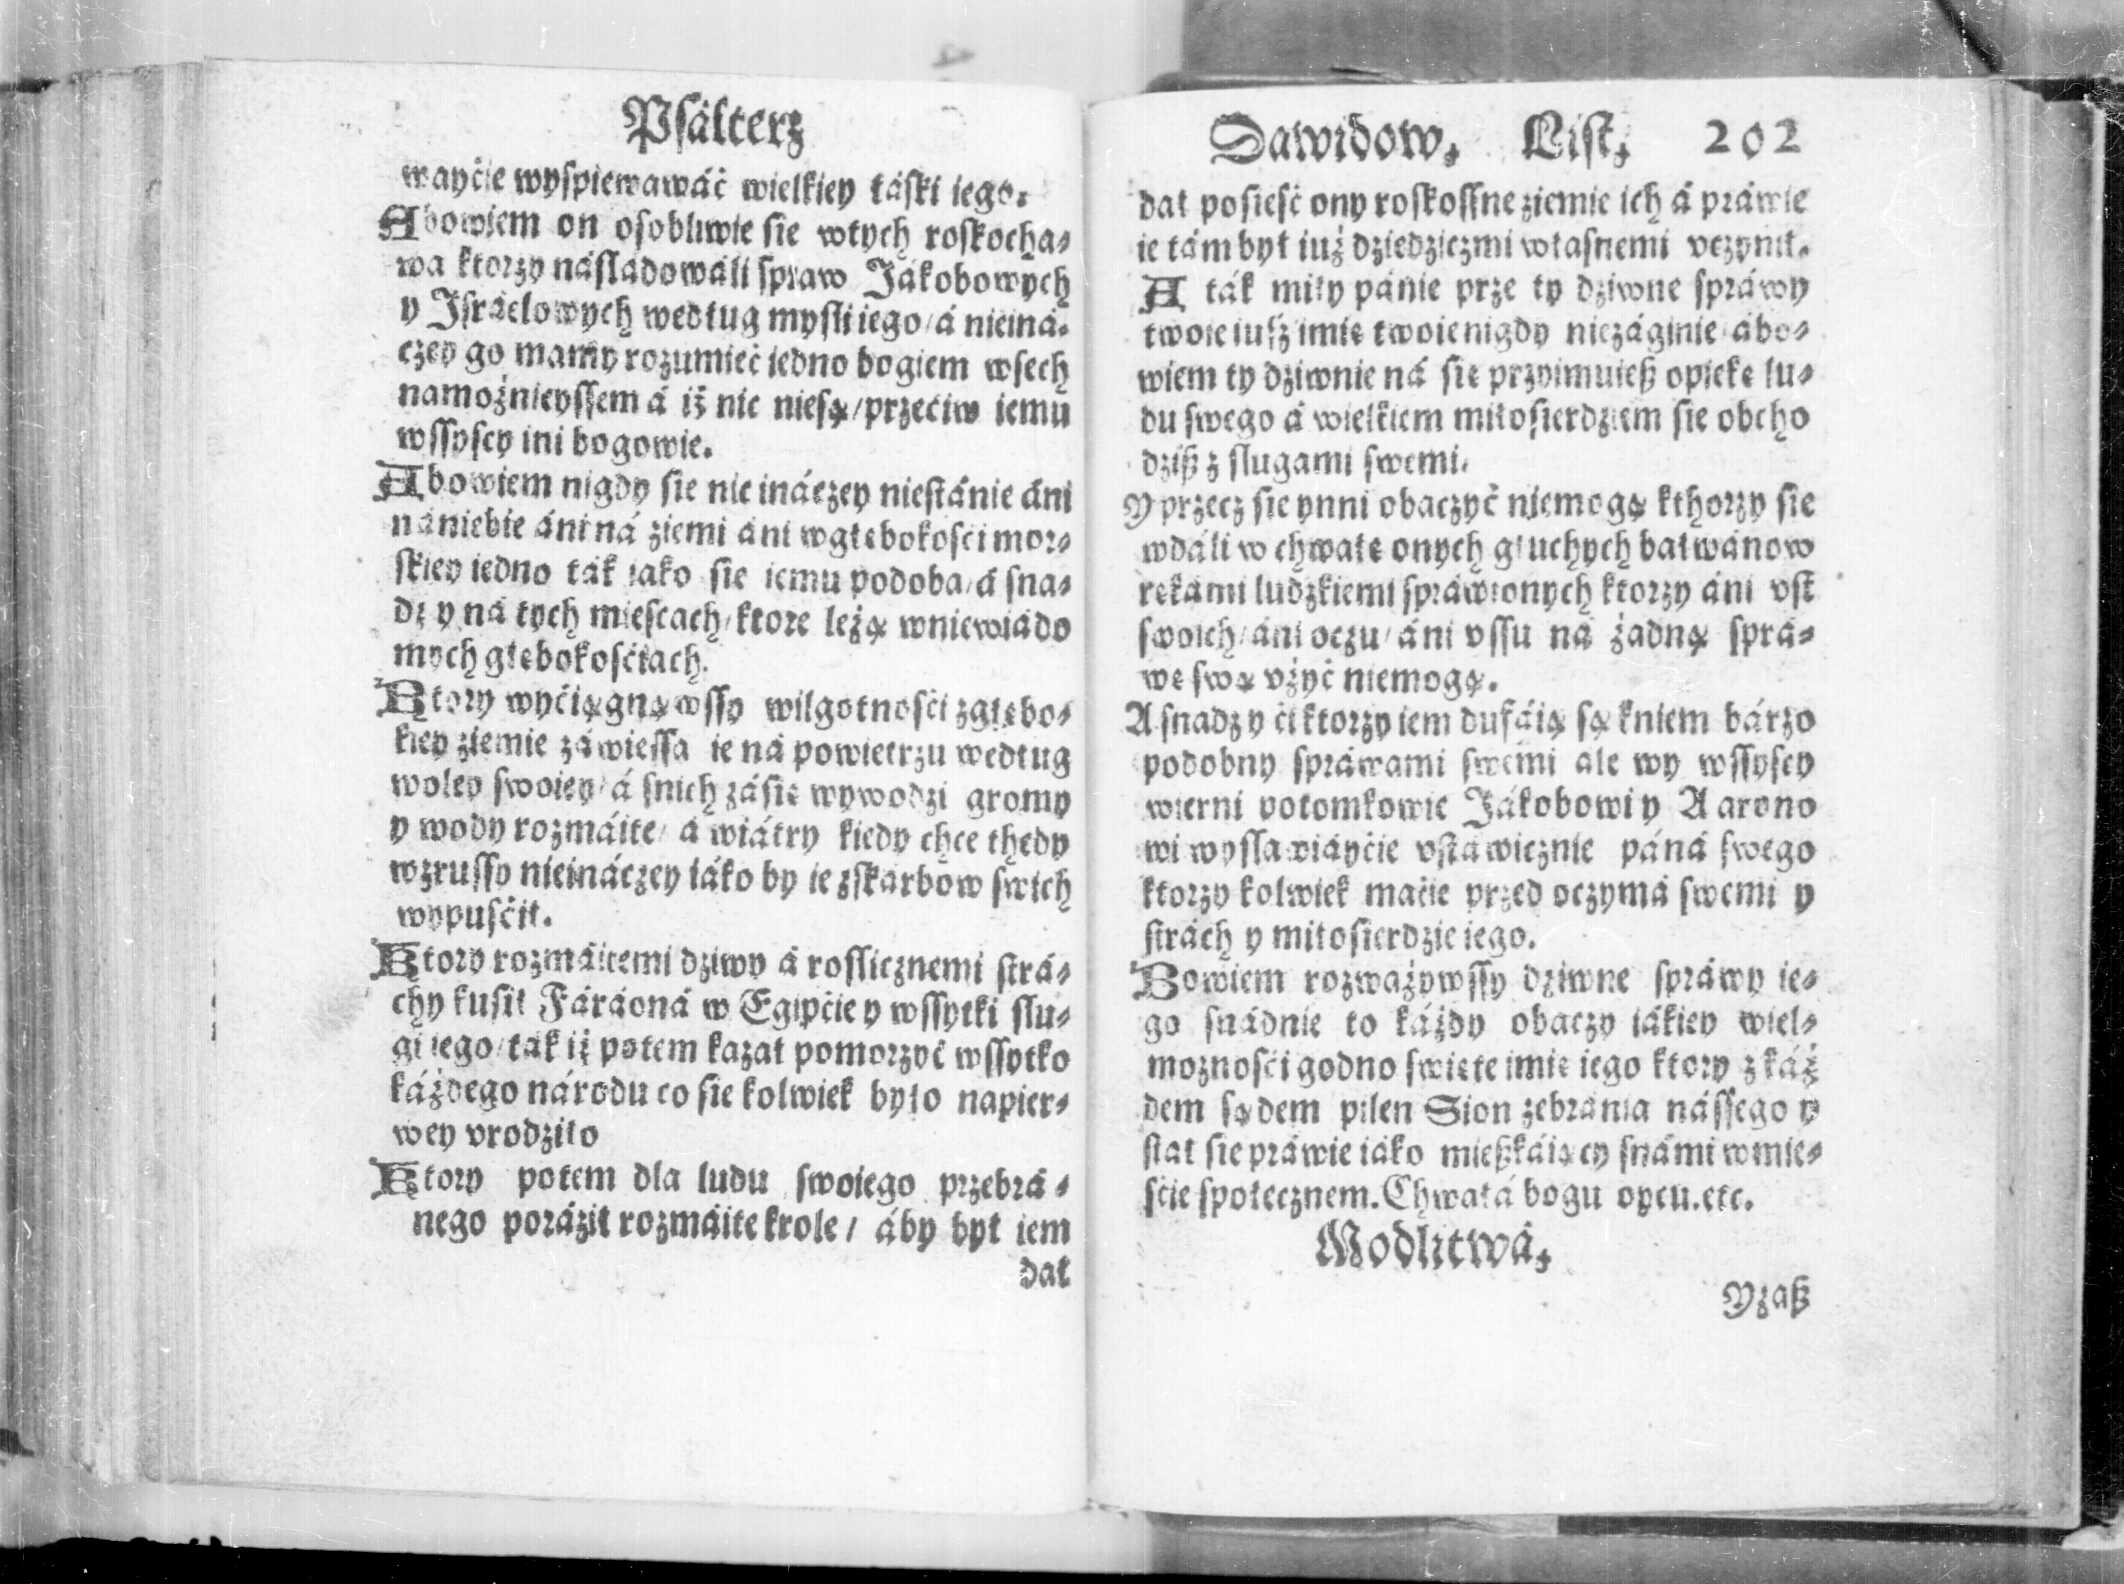 Psálterz
wayćie wyspiewawáć wielkiey łáski iego.
Abowiem on osobliwie sie wtych roskocha-
wa ktorzy násladowáli spraw Jákobowych
y Jsráelowych według mysli iego / á nieiná-
czey go mamy rozumieć iedno bogiem wsech
namożnieyssem á iż nic niesą / przećiw iemu
wssyscy ini bogowie.
Abowiem nigdy sie nic ináczey niestánie áni
ná niebie áni ná ziemi áni wgłębokosci mor-
skiey iedno ták iako sie iemu podoba / á sna-
dz y ná tych miescach / ktore leżą wniewiádo
mych głębokośćiach.
Ktory wyćiągnąwssy wilgotnośći zgłębo-
kiey ziemie záwiessa ie ná powietrzu według
woley swoiey / á snich zásię wywodzi gromy
y wody rozmáite / á wiátry kiedy chce thedy
wzrussy nieináczey iáko by ie zskarbow swich
wypuśćił.
Ktory rozmáitemi dziwy á roslicznemi strá-
chy kusił Fáráoná w Egipćie y wssytki slu-
gi iego / ták iż potem kazał pomorzyć wssytko
káżdego národu co sie kolwiek było napier-
wey vrodziło
Ktory potem dla ludu swoiego przebrá-
nego poráził rozmáite krole / áby był iem
dał
Dawidow, List, 202
dał posieść ony roskossne ziemie ich á práwie
ie tám był iuż dziedziczmi własnemi vczynił.
A ták miły pánie prze ty dziwne spráwy
twoie iusz imię twoie nigdy niezáginie / ábo-
wiem ty dziwnie ná się przyimuieß opiekę lu-
du swego á wielkiem miłosierdziem sie obcho
dziß z slugami swemi.
Y przecz sie ynni obaczyć niemogą kthorzy sie
wdáli w chwałę onych głuchych bałwánow
rękámi ludzkiemi spráwionych ktorzy áni vst
swoich / áni oczu / áni vssu ná żadną sprá-
wę swą vżyć niemogą.
A snadz y ći ktorzy iem dufáią są kniem bárzo
podobny spráwami swemi ale wy wssyscy
wierni potomkowie Jákobowi y Aarono
wi wyslawiáyćie vstáwicznie páná swego
ktorzy kolwiek maćie przed oczymá swemi y
strách y miłosierdzie iego.
Bowiem rozważywssy dziwne spráwy ie-
go snádnie to káżdy obaczy iákiey wiel-
moznośći godno swięte imię iego ktory z káż
dem sądem pilen Sion zebránia nássego y
stał sie práwie iáko mießkáiący snámi wmie-
śćie społecznem. Chwałá bogu opcu. etc.
Modlitwá,
Yzaß